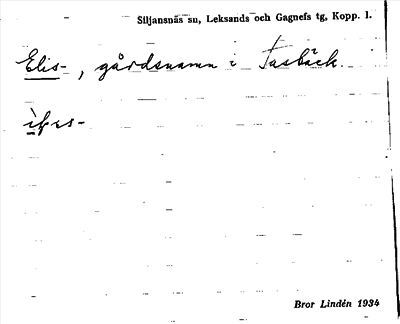 Siljansnäs sn, Leksands och Gagnefs tg, Kopp. l.
Elis-, gårdsnamn i
Bror Lindén 1934